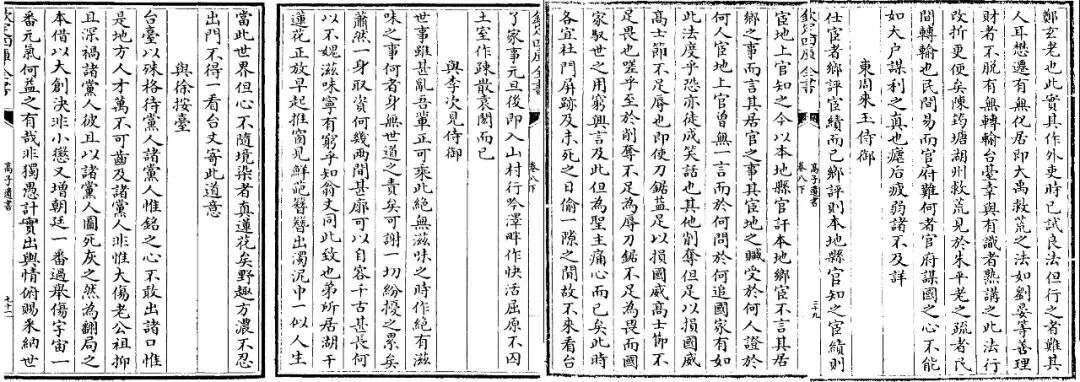 鄭玄老也此實具作外吏時已試良法但行之者難其
人耳想遷有無化居即大禹救荒之法如劉晏等善理
財者不脫有無轉輸台臺幸與有識者熟講之此法行
改折更便矣陳筠塘湖州救荒見於朱平老之疏者民
間轉輸也民間易而官府難何者官府謀國之心不能
如大戶謀利之真也癃后疲弱諸不及詳
東周來玉侍御
仕宦者鄉評宦績而已鄉評則本地縣官知之宦績則
高子遺書
宦地上官知之今以本地縣官訐本地鄉宦不言其居
鄉之事而言其居官之事其宦地之贓受於何人證於
何人宦地上官曾無一言而於何問於何追國家有如
此法度乎恐亦徒成笑話也其他削奪但足以損國威
高士節不足辱也即使刀鋸葢足以損國威高士節不
足畏也嗟乎至於削奪不足為辱刀鋸不足為畏而國
家馭世之用窮興言及此但為聖主痛心而已矣此時
各宜杜門屏跡及未死之日偷一隙之閒故不來看台
欽定四庫全書
卷八下
了家事元旦後即入山村行吟澤畔作快活屈原不囚
土室作疎散袁閎而已
與李次見侍御
世事雖甚亂吾輩正可乘此絕無滋味之時作絕有滋
味之事何者身無世道之責矣可謝一切紛擾之累矣
蕭然一身取資何幾兩間甚廓可以自容千古甚長何
以不媿滋味寧有窮乎知翁丈同此致也弟所居湖干
蓮花正放早起推窗見鮮葩簪簪出濁沉中一似人生
當此世界但心不隨境染者真蓮花矣野趣方濃不忍
出門不得一看台丈寄此道意
與徐按臺
台臺以殊格待黨人諸黨人惟銘之心不敢出諸口惟
是地方人才萬不可齒及諸黨人非惟大傷老公祖抑
且深禍諸黨人彼且以諸黨人圖死灰之然為翻局之
本借以大創決非小懲又增朝廷一番過舉傷宇宙一
番元氣何益之有哉非獨愚計實出輿情俯賜采納世
欽定四庫全書
高子遺書